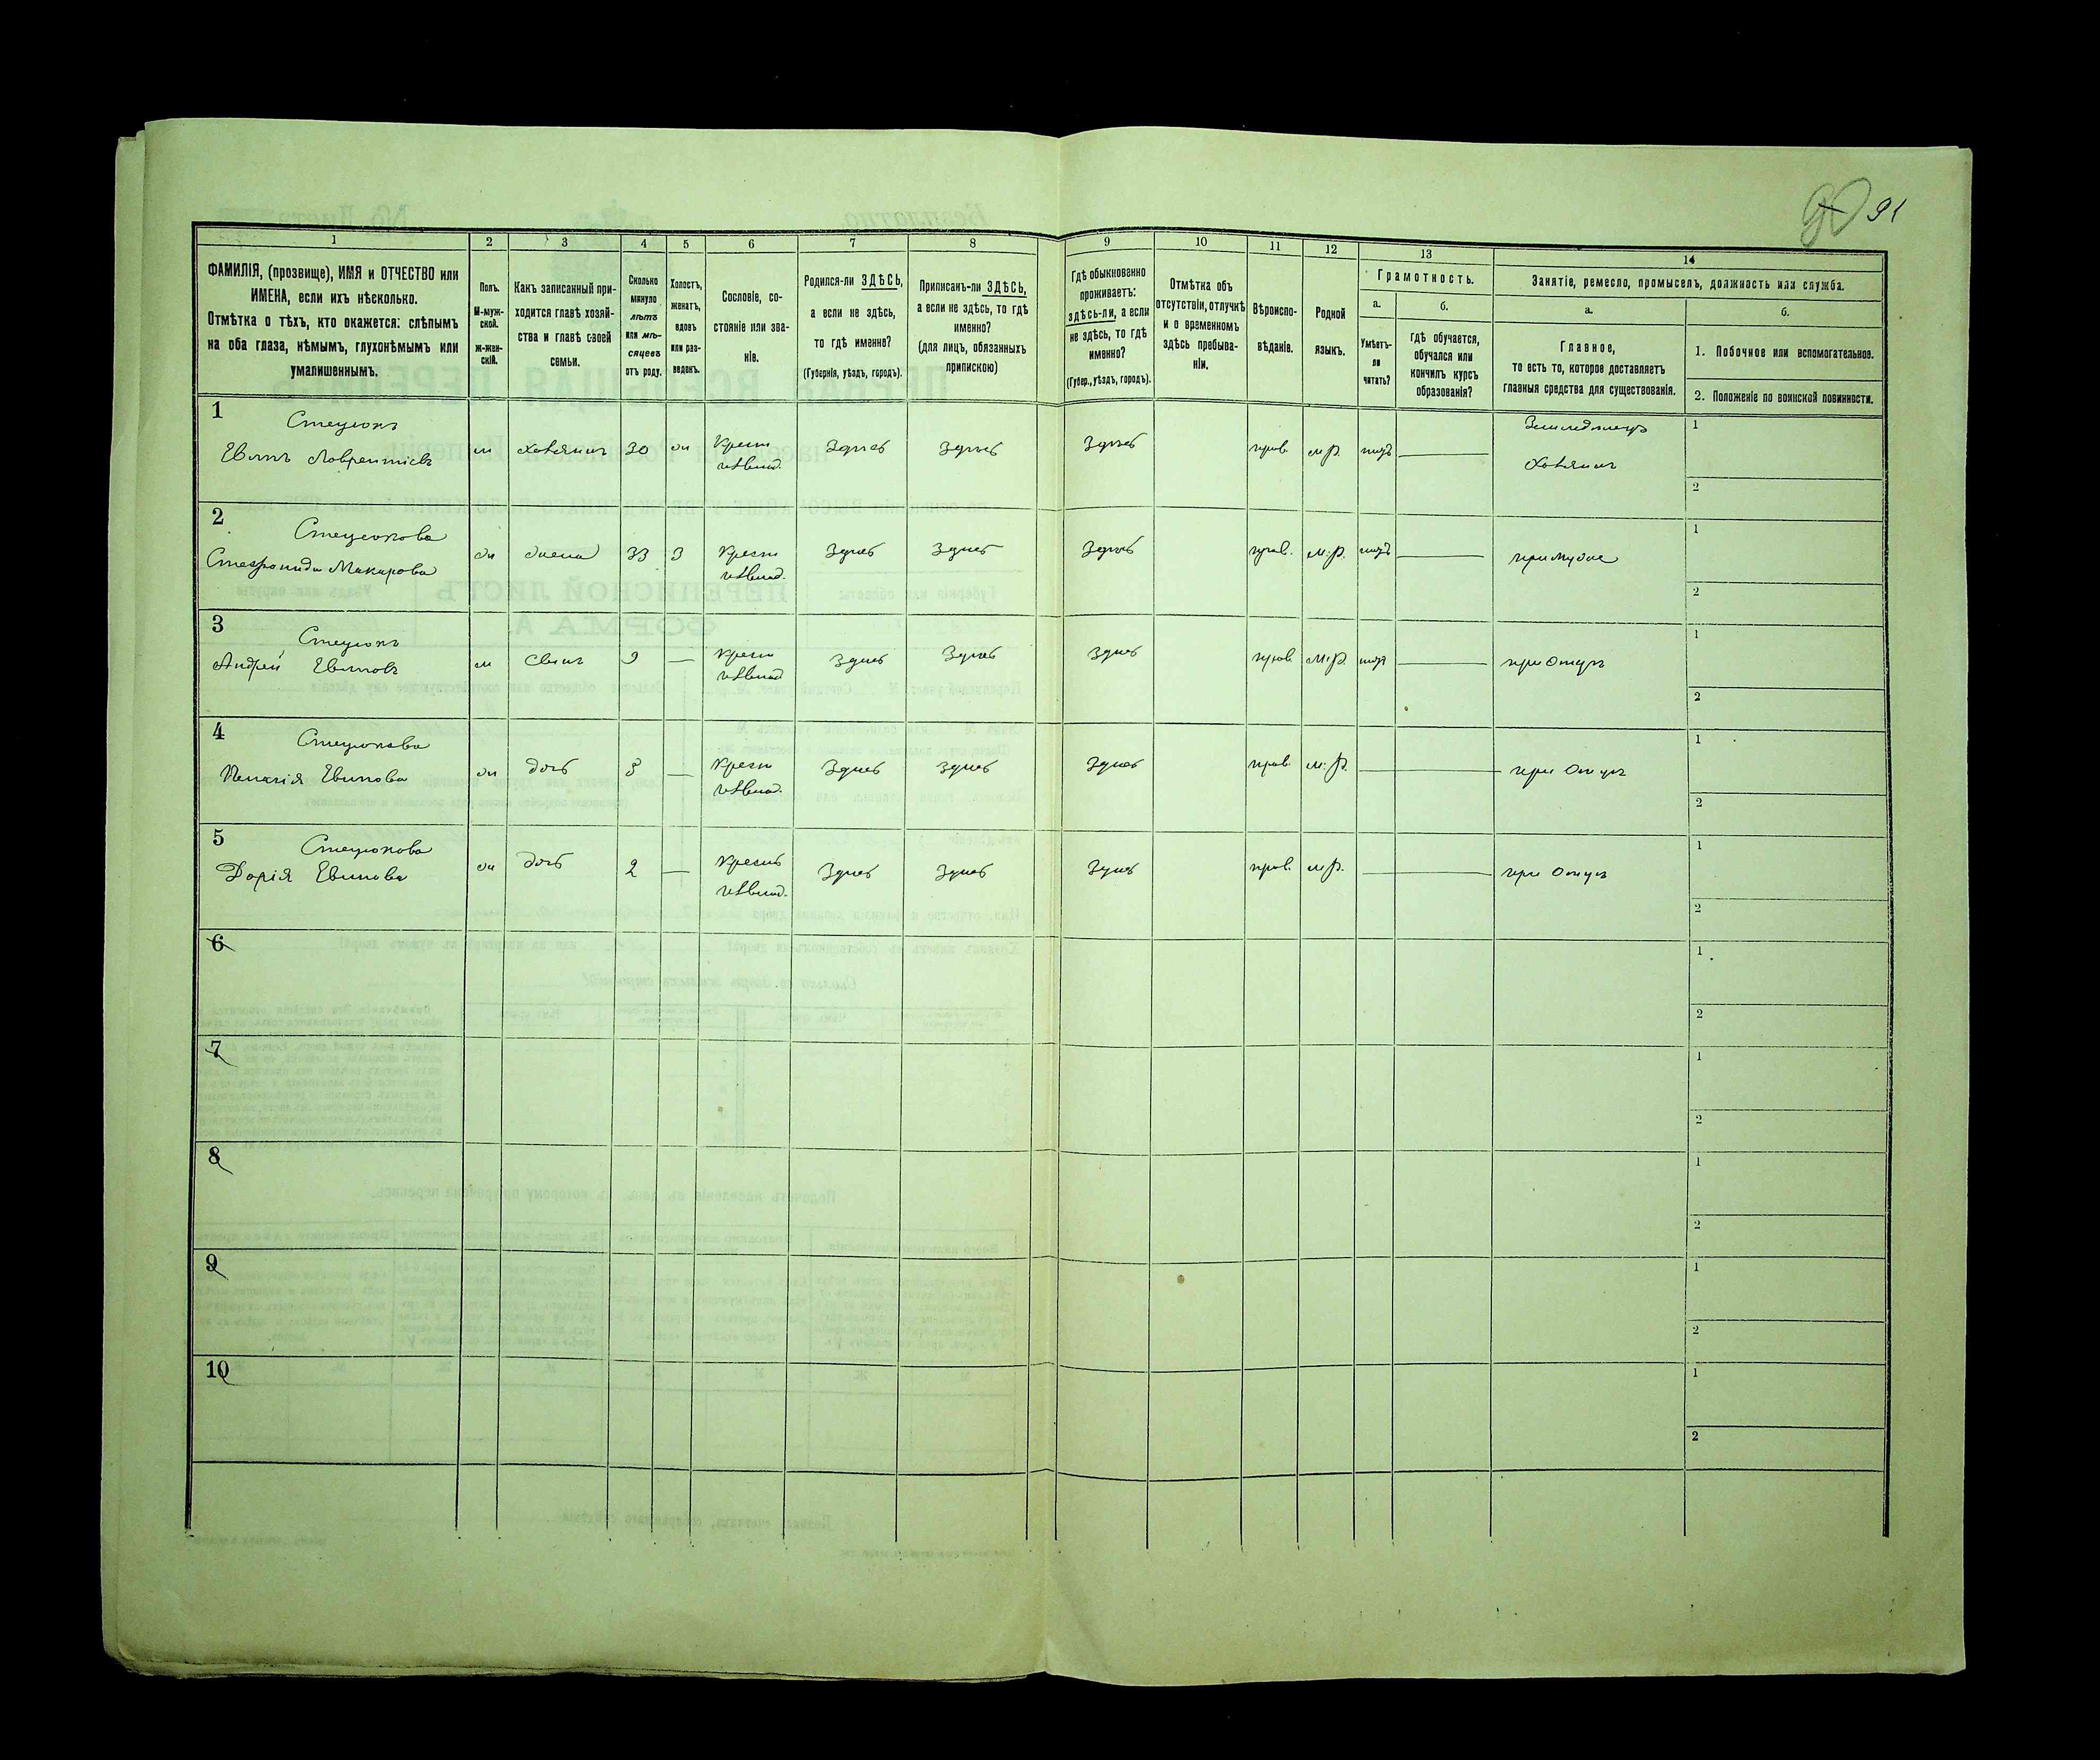 90 91
1 2 3 4 5 6 7 8 9 10 11 12 13 14
ФАМИЛІЯ, (прозвище), ИМЯ и ОТЧЕСТВО или
ИМЕНА, если ихъ нѣсколько.
Отмѣтка о тѣхъ, кто окажется: слѣпымъ
на оба глаза, нѣмымъ, глухонѣмымъ или
умалишеннымъ.
Полъ.
М-муж-
ской.
ж-жен-
скій.
Какъ записанный при-
ходится главѣ хозяй-
ства и главѣ своей
семьи.
Сколько
минуло
лѣтъ
или мѣ-
сяцевъ
отъ роду.
Холостъ,
женатъ,
вдовъ
или раз-
веденъ.
Сословіе, со-
стояніе или зва-
ніе.
Родился-ли ЗДѢСЬ,
а если не здѣсь,
то гдѣ именно?
(Губернія, уѣздъ, городъ).
Приписанъ-ли ЗДѢСЬ,
а если не здѣсь, то гдѣ
именно?
(для лицъ, обязанныхъ
припискою)
Гдѣ обыкновенно
проживаетъ:
здѣсь-ли, а если
не здѣсь, то гдѣ
именно?
(Губер., уѣздъ, городъ).
Отмѣтка объ
отсутствіи, отлучкѣ
и о временномъ
здѣсь пребыва-
ніи.
Вѣроиспо-
вѣданіе.
Родной
языкъ.
Грамотность.
а.
Умѣетъ-
ли
читать?
б.
гдѣ обучается,
обучался или
кончилъ курсъ
образованія?
Занятіе, ремесло, промыселъ, должность или служба.
а.
Главное,
то есть то, которое доставляетъ
главныя средства для существованія.
б.
1. Побочное или вспомогательное.
2. Положеніе по воинской повинности.
1 Стецюкъ Земледѣлецъ 1
Лаврентіевъ м хозяинъ 30 ж Крест Здѣсь Здѣсь Здѣсь прав. м.р. Хозяинъ
2
2 Стецюкова 1
Стефанида Макарова ж жена 33 З Крест Здѣсь Здѣсь Здѣсь прав. м.р. при мужѣ
2
3 Стецюкъ 1
Андрей м сынъ 9 — Крест Здѣсь Здѣсь Здѣсь прав. м.р. при отцѣ
2
4 Стецюкова 1
ж дочь 5 — Крест Здѣсь Здѣсь Здѣсь прав. м.р. при отцѣ
2
5 Стецюкова 1
Дарія ж дочь 2 — Крест Здѣсь Здѣсь Здѣсь прав. м.р. при отцѣ
2
6 1
2
7 1
2
8 1
2
9 1
2
10 1
2